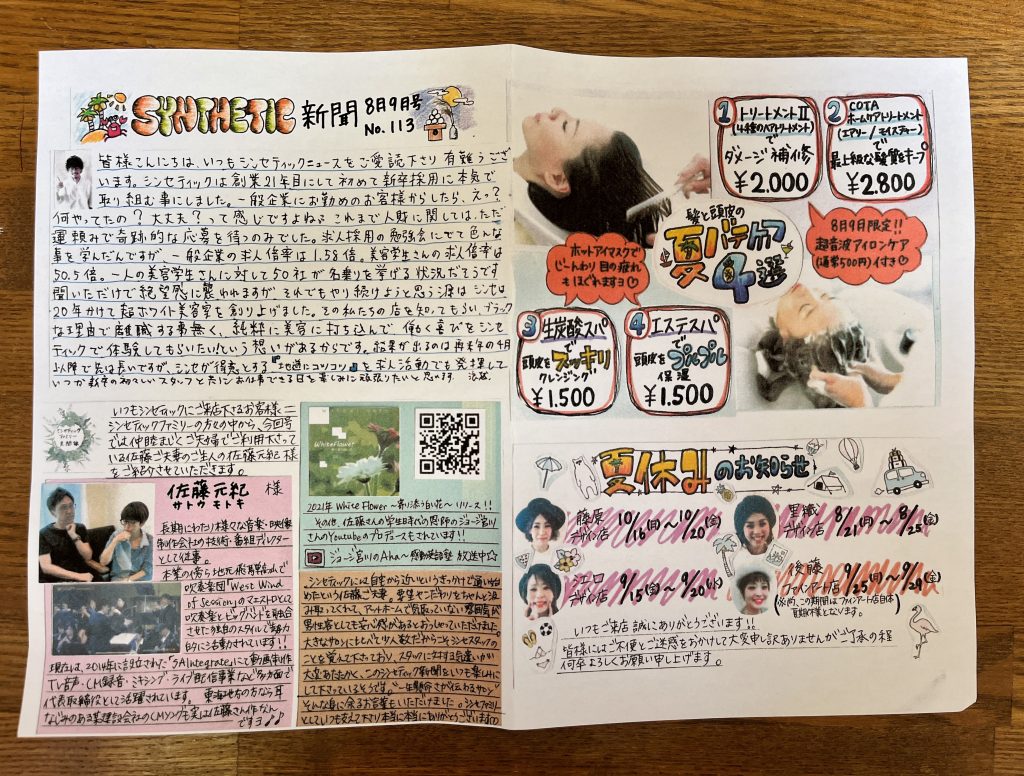 SYNTHETIC 新聞 8月9月号
No.113
皆様こんにちは、いつもシンセティックニュースをご愛読下さり有難うござ
います。シンセティックは創業21年目にして初めて新卒採用に本気で
取り組む事にしました。一般企業にお勤めのお客様からしたら、えっ?
何やってたの?大丈夫?って感じですよね。これまで人財に関しては、ただ
運頼みで奇跡的な応募を待つのみでした。求人採用の勉強会にでて色んな
事を学んだんですが、一般企業の求人倍率は1.58倍。美容学生さんの求人倍率は
50.5倍。一人の美容学生さんに対して50社が名乗りを挙げる状況だそうです
聞いただけで絶望感に襲われますが、それでもやり続けようと思う源はシンセは
20年かけて超ホワイト美容室を創り上げました。その私たちの店を知ってもらい、ブラック
な理由で離職する事無く、純粋に美容に打ち込んで、働く喜びをシンセ
ティックで体験してもらいたいという想いがあるからです。結果が出るのは再来年の4月
以降で先は長いですが、シンセが得意とする『地道にコツコツ』を求人活動でも発揮して
いつか新卒の初々しいスタッフと共にお仕事できる日を楽しみに頑張りたいと思います。
シンセティック
ファミリー
見聞録
いつもシンセティックにご来店下さるお客様=
シンセティックファミリーの方々の中から、今回号
では仲睦まじくご夫婦でご利用下さって
いる佐藤ご夫妻のご主人の佐藤元紀様
をご紹介させていただきます。
佐藤元紀 様
サトウ モトキ
長期にわたり様々な音楽・映像
制作会社の技術・番組ディレクター
として従事。
本業の傍ら地元
吹奏楽団『West Wind
of Session』のマエストロとして
吹奏楽とビッグバンドを融合
させた独自のスタイルで精力
的にご活動されています!!
現在は、2014年に設立された『SAIntegrate』にて動画制作
TV音声・CM録音・ミキシング・ライブ配信事業など多方面で
代表取締役としてご活躍されています。 東海地方の方なら耳
なじみのある某建設会社のCMソングも実は佐藤さん作なん
ですヨ♪♪
WhiteFlower
2021年 White Flower 〜寄り添う白い花〜 リリース!!
その他、佐藤さんの学生時代からの恩師のジョージ宮川
さんのYoutubeのプロデュースもされています!!
ジョージ宮川のAha〜感動英語塾 放送中☆
シンセティックには自宅から近いというきっかけで通い始
めたという佐藤ご夫妻。要望やこだわりをちゃんと汲
み取ってくれて、アットホームで気取っていない雰囲気が
男性客としても安心感があるとおっしゃっていただけました。
大きなサロンに比べて少人数だからこそシンセスタッフの
ことを覚えて下さっており、スタッフに対する
またこのシンセティック新聞をいつも楽しみに
して下さっているそうです。"一生懸命さが伝わるサロン"
そんな身に余るお言葉もいただけました。シンセファミリー
としていつも支えて下さり本当に本当にありがとうございます
① トリートメントⅡ
(4種のヘアトリートメント)
で
ダメージ補修
¥2.000
② COTA
ホームケアトリートメント
(エアリー/モイスチャー)
で
最上級な髪質をキープ
¥2.800
髪と頭皮の
夏バテケア
4選
ホットアイマスクで
じーんわり目の疲れ
もほぐれますヨ♡
8月9月限定!!
超音波アイロンケア
(通常500円)付き♡
③ 生炭酸スパ
で
頭皮をスッキリ
クレンジング
¥1.500
④ エステスパ
で
頭皮をプルプル
保湿
¥1.500
夏休みのお知らせ
藤原
デザイン店
10/16(月)〜10/20(金)
里織
デザイン店
8/21(月)〜8/25(金)
江口
デザイン店
9/15(金)〜9/20(水)
後藤
ファインアート店
9/25(月)〜9/29(金)
(※尚、この期間はファインアート店自体
夏期休業となります。)
いつもご来店誠にありがとうございます!!
皆様にはご不便とご迷惑をおかけして大変申し訳ありませんがご了承の程
何卒よろしくお願い申し上げます。